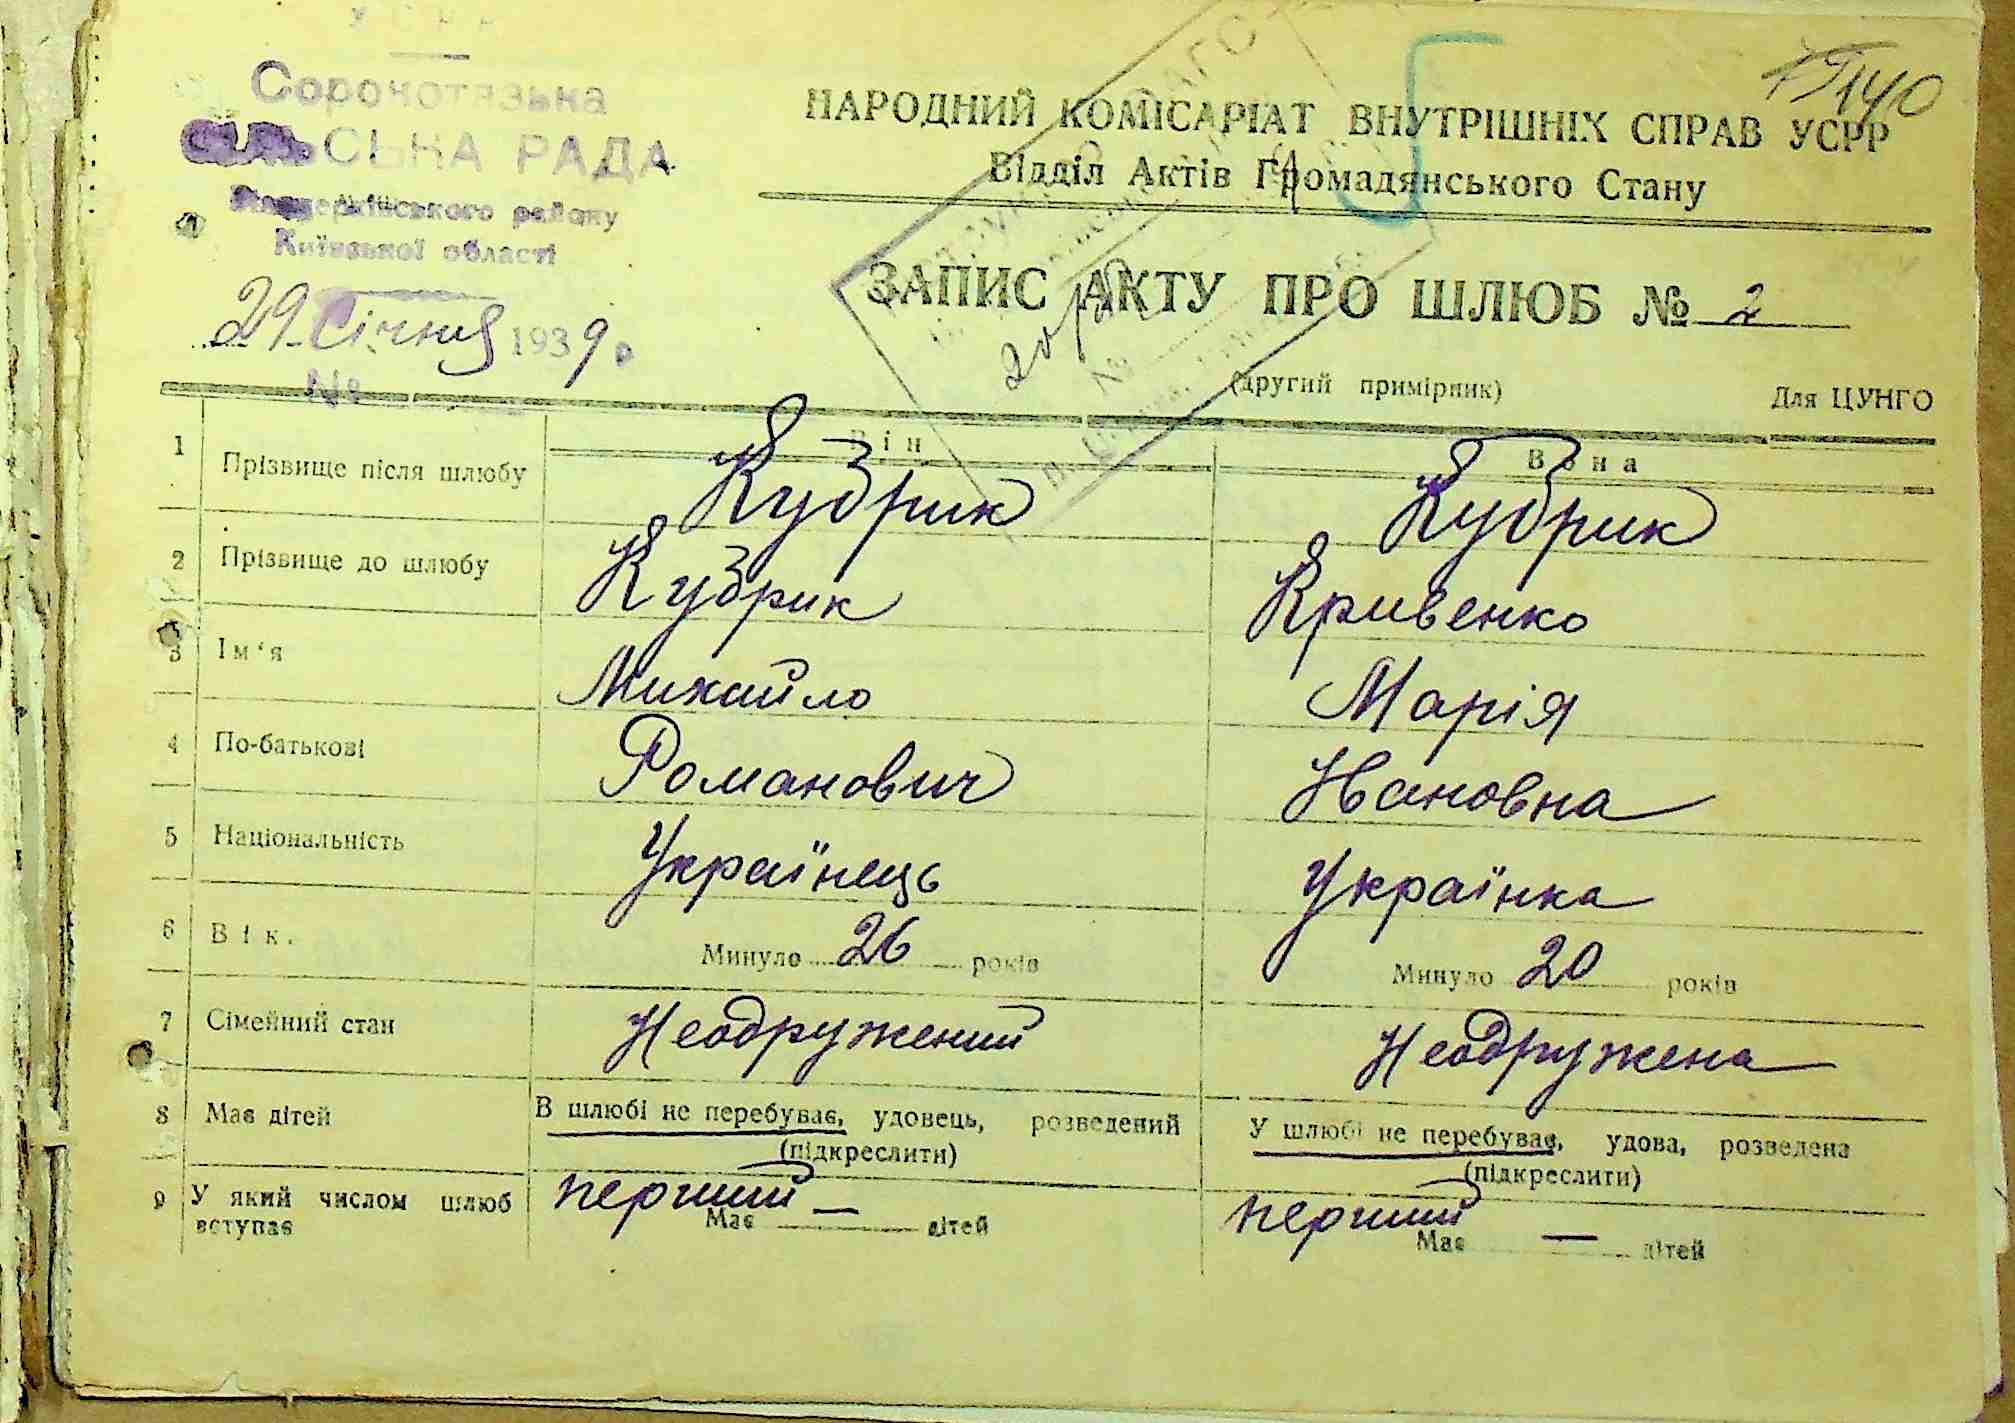 УСРР
Сорочотязька
СІЛЬСЬКА РАДА
району
Київської області
29 Січня 1939 р.
№
140
НАРОДНИЙ КОМІСАРІАТ ВНУТРІШНІХ СПРАВ УСРР
Відділ Актів Громадянського Стану
ЗАПИС АКТУ ПРО ШЛЮБ № 2
(другий примірник) Для ЦУНГО
Він Вона
1 Прізвище після шлюбу Кубрик Кубрик
2 Прізвище до шлюбу Кубрик Кривенко
3 Ім'я Михайло Марія
4 По-батькові Романович Івановна
5 Національність Українець Українка
6 Вік. Минуло 26 років Минуло 20 років
7 Сімейний стан Неодружений Неодружена
8 Має дітей В шлюбі не перебуває, удовець, розведений У шлюбі не перебуває, удова, розведена
(підкреслити) (підкреслити)
9 У який числом шлюб перший перший
вступає Має — дітей Має — дітей